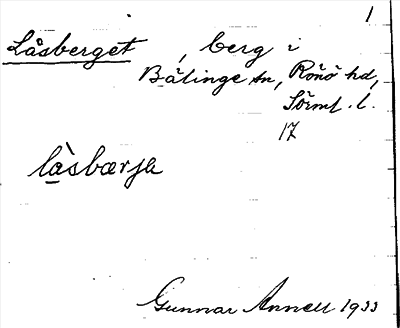 1
Låsberget, berg i
Bälinge sn, Rönö hd,
Sörml. l.
17
làsbærjə
Gunnar Annell 1933